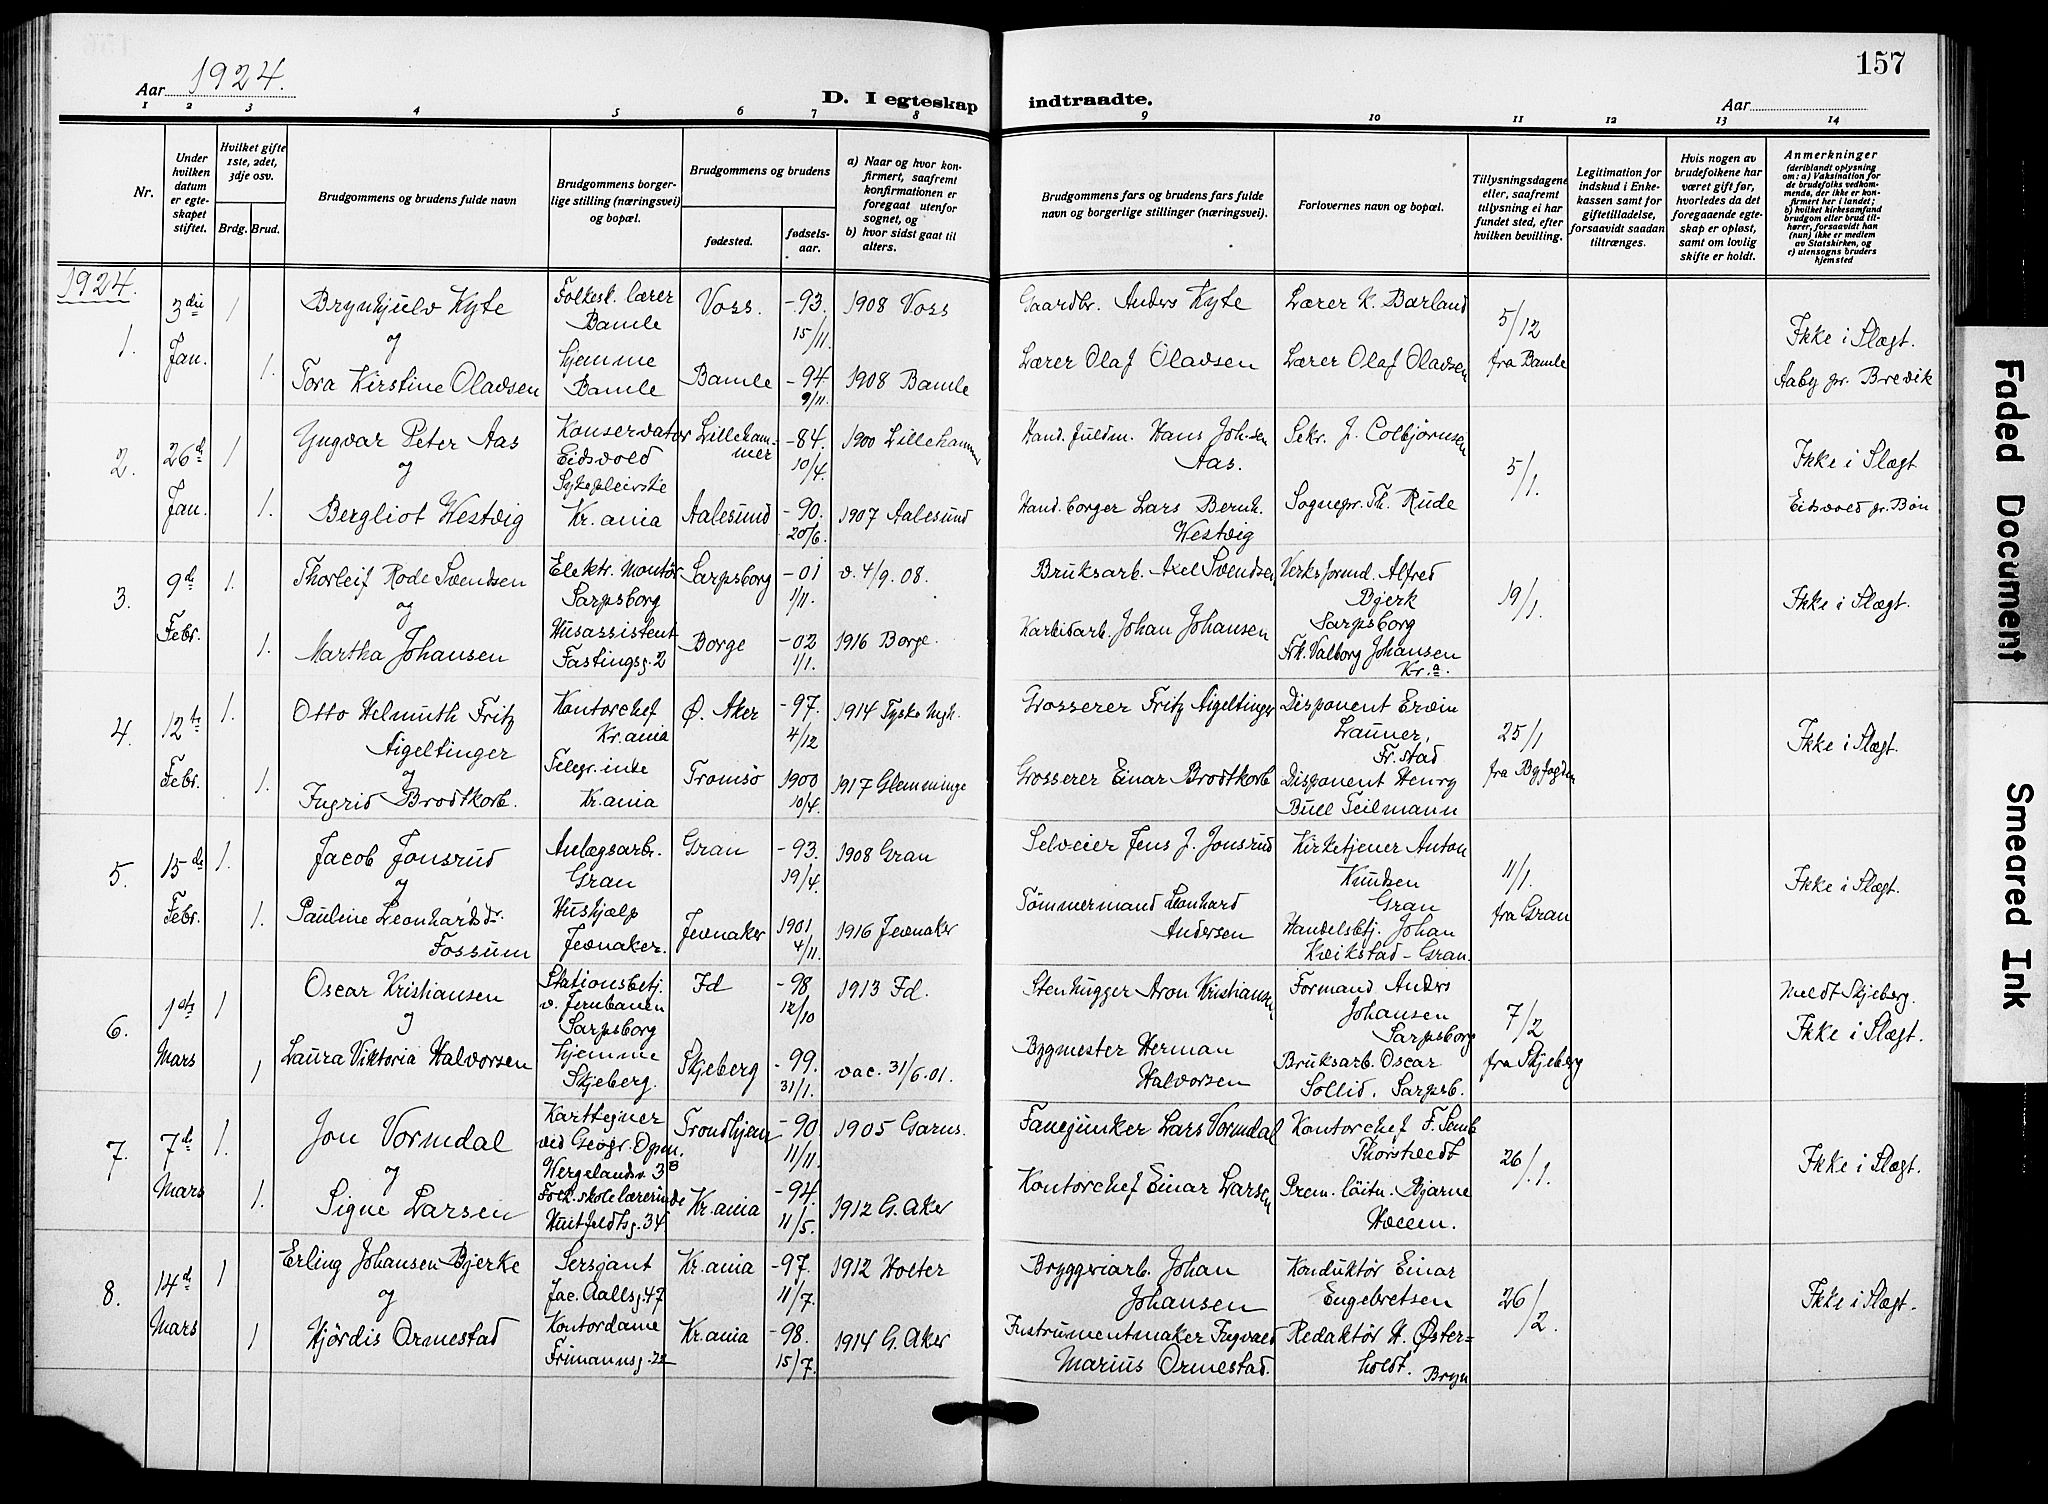 157
Aar 1924.
D. I egteskap indtraadte.
Aar
1 2 3 4 5 6 7 8 9 10 11 12 13 14
Nr.
Under hvilken datum er egteskapet stiftet.
Hvilket gifte 1ste, 2det, 3dje osv.
Brdg. Brud.
Brudgommens og brudens fulde navn
Brudgommens borgerlige stilling (næringsvei) og bopæl.
Brudgommens og brudens
fødested.
fødselsaar.
a) Naar og hvor konfirmert, saafremt konfirmationen er foregaat utenfor sognet, og
b) hvor sidst gaat til alters.
Brudgommens fars og brudens fars fulde navn og borgerlige stillinger (næringsvei).
Forlovernes navn og bopæl.
Tillysningsdagene eller, saafremt tillysning ei har fundet sted, efter hvilken bevilling.
Legitimation for indskud i Enkekassen samt for giftetilladelse, forsaavidt saadan tiltrænges.
Hvis nogen av brudefolkene har været gift før, hvorledes da det foregaaende egteskap er opløst, samt om lovlig skifte er holdt.
Anmerkninger
(deriblandt oplysning om: a) Vaksination for de brudefolks vedkommende, der ikke er konfirmert her i landet; b) hvilket kirkesamfund brudgom eller brud tilhører, forsaavidt han (hun) ikke er medlem av Statskirken, og c) utensogns bruders hjemsted
1924.
1. 3die Jan. 1 Brynhjulv Kyte Folkesk. lærer Bamle Voss. -93. 15/11. 1908 Voss Gaardbr. Anders Kyte Lærer K. Barland 5/12 fra Bamle Ikke i Slegt.
og
1. Tora Kirstine Olavsen hjemme Bamle Bamle -94 9/11. 1908 Bamle Lærer Olaf Olavsen Lærer Olaf Olavsen Aaby pr. Brevik
2. 26de Jan. 1 Yngvar Peter Aas Konservator Eidsvold Lillehammer -84. 10/4. 1900 Lillehammer Hand. fuldm. Hans Joh.sen Aas. Sekr. J. Colbjørnsen 5/1. Ikke i Slegt
og
1. Bergliot Westvig Sykepleierske Kr.ania Aalesund -90. 20/6. 1907 Aalesund Hand. borger Lars Bernh. Westvig Sognepr. Th. Rude Eidsvold pr. Bøn
3. 9de Febr. 1. Thorleif Rode Svendsen Elektr. montør Sarpsborg Sarpsborg -01 1/11. v. 4/9. 08. Bruksarb. Axel Svendsen Verksformd. Alfred Bjerk Sarpsborg 19/1. Ikke i Slegt.
og
1. Martha Johansen Husassistent Fastingsg. 2 Borge -02 1/1. 1916 Borge. Karbidarb. Johan Johansen Frk. Valborg Johansen Kr.a.
4. 12te Febr. 1. Otto Helmuth Fritz Aigeltinger Kontorchef Kr.ania Ø. Aker -97. 4/12 1914 Tyske mgh. Grosserer Fritz Aigeltinger Disponent Erwin Launer, Fr.stad 25/1 fra Byfogden Ikke i Slegt.
og
1. Ingrid Brodtkorb. Telegr.inde Kr.ania Tromsö 1900 10/4. 1917 Glemminge Grosserer Einar Brodtkorb Disponent Henry Buell Teilmann
5. 15de Febr. 1. Jacob Jonsrud Anlegsarbr. Gran Gran -93. 19/4. 1908 Gran Selveier Jens J. Jonsrud Kirketjener Anton Knudsen Gran 11/1. fra Gran Ikke i Slegt.
og
1. Pauline Leonhardsdr. Fossum Hushjælp Jevnaker. Jevnaker 1901 4/11. 1916 Jevnaker Tömmermand Leonhard Andersen Handelsbtj. Johan Kvikstad - Gran.
6. 1ste Mars 1 Oscar Kristiansen Stationsbetj. v. Jernbanen Sarpsborg Id -98 12/10 1913 Id. Stenhugger Aron Kristiansen Formand Anders Johansen Sarpsborg 7/2 fra Skjeberg Meldt Skjeberg. Ikke i Slegt.
og
1 Laura Viktoria Halvorsen hjemme Skjeberg. Skjeberg -99. 31/1. vac. 31/6. 01. Bygmester Herman Halvorsen Bruksarb. Oscar Sollid. Sarpsb.
7. 7de Mars 1. Jon Vormdal Karttegner ved Geogr. Opm. Wergelandsv. 3B Trondhjem -90. 11/11. 1905 Garns. Fanejunker Lars Vormdal Kontorchef F. Semb Thorstvedt 26/1. Ikke i Slegt.
og
1. Signe Larsen Folk. skolelærerinde Huitfeldtsg. 34 Kr.ania -94. 11/5. 1912 G. Aker Kontorchef Einar Larsen Prem. löitn. Bjarne
8. 14de Mars 1 Erling Johansen Bjerke Sersjant Jac. Aallsg. 47 Kr.ania -97. 11/7. 1912 Holter Bryggeriarb. Johan Johansen Konduktör Einar Engebretsen 26/2. Ikke i Slegt.
og
1 Hjördis Ormestad Kontordame Frimannsg. 22 Kr.ania -98. 15/7. 1914 G. Aker Instrumentmaker Ingvald Marius Ormestad. Redaktör H. Østerholdt. Bryn
Faded Document
Smeared Ink